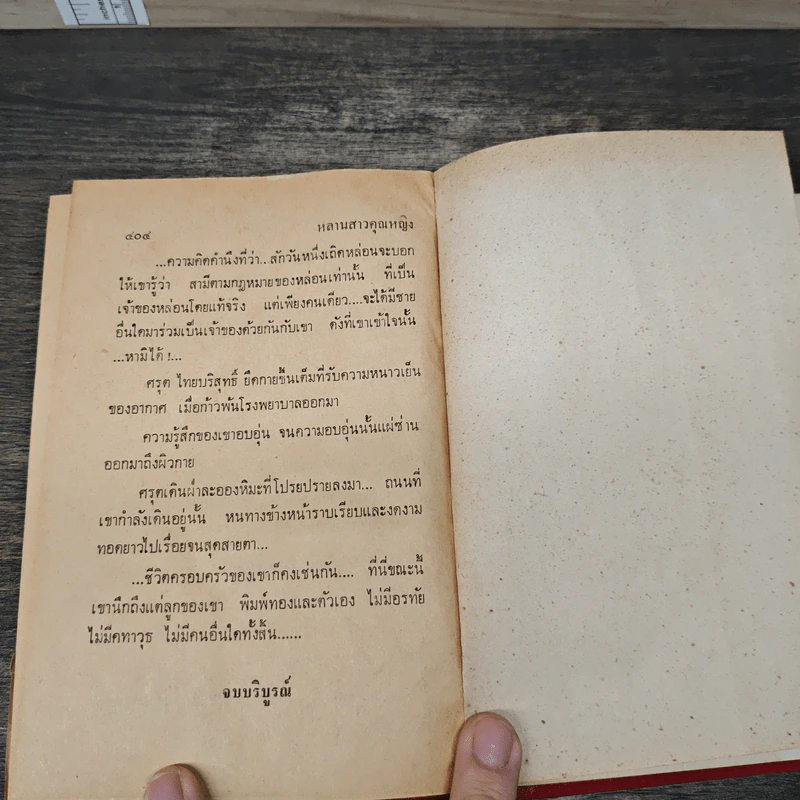 inches
๔๐๔ หลานสาวคุณหญิง
...ความคิดคำนึงที่ว่า...สักวันหนึ่งเถิดหล่อนจะบอก
ให้เขารู้ว่า สามีตามกฎหมายของหล่อนเท่านั้น ที่เป็น
เจ้าของหล่อนโดยแท้จริง แต่เพียงคนเดียว....จะได้มีชาย
อื่นใดมาร่วมเป็นเจ้าของด้วยกันกับเขา ดังที่เขาเข้าใจนั้น
...หามิได้ !...
ศรุต ไทยบริสุทธิ์ ยืดกายขึ้นเต็มที่รับความหนาวเย็น
ของอากาศ เมื่อก้าวพ้นโรงพยาบาลออกมา
ความรู้สึกของเขาอบอุ่น จนความอบอุ่นนั้นแผ่ซ่าน
ออกมาถึงผิวกาย
ศรุตเดินฝ่าละอองหิมะที่โปรยปรายลงมา... ถนนที่
เขากำลังเดินอยู่นั้น หนทางข้างหน้าราบเรียบและงดงาม
ทอดยาวไปเรื่อยจนสุดสายตา...
...ชีวิตครอบครัวของเขาก็คงเช่นกัน.... ที่นี่ขณะนี้
เขานึกถึงแต่ลูกของเขา พิมพ์ทองและตัวเอง ไม่มีอรทัย
ไม่มีคทาวุธ ไม่มีคนอื่นใดทั้งสิ้น......
จบบริบูรณ์